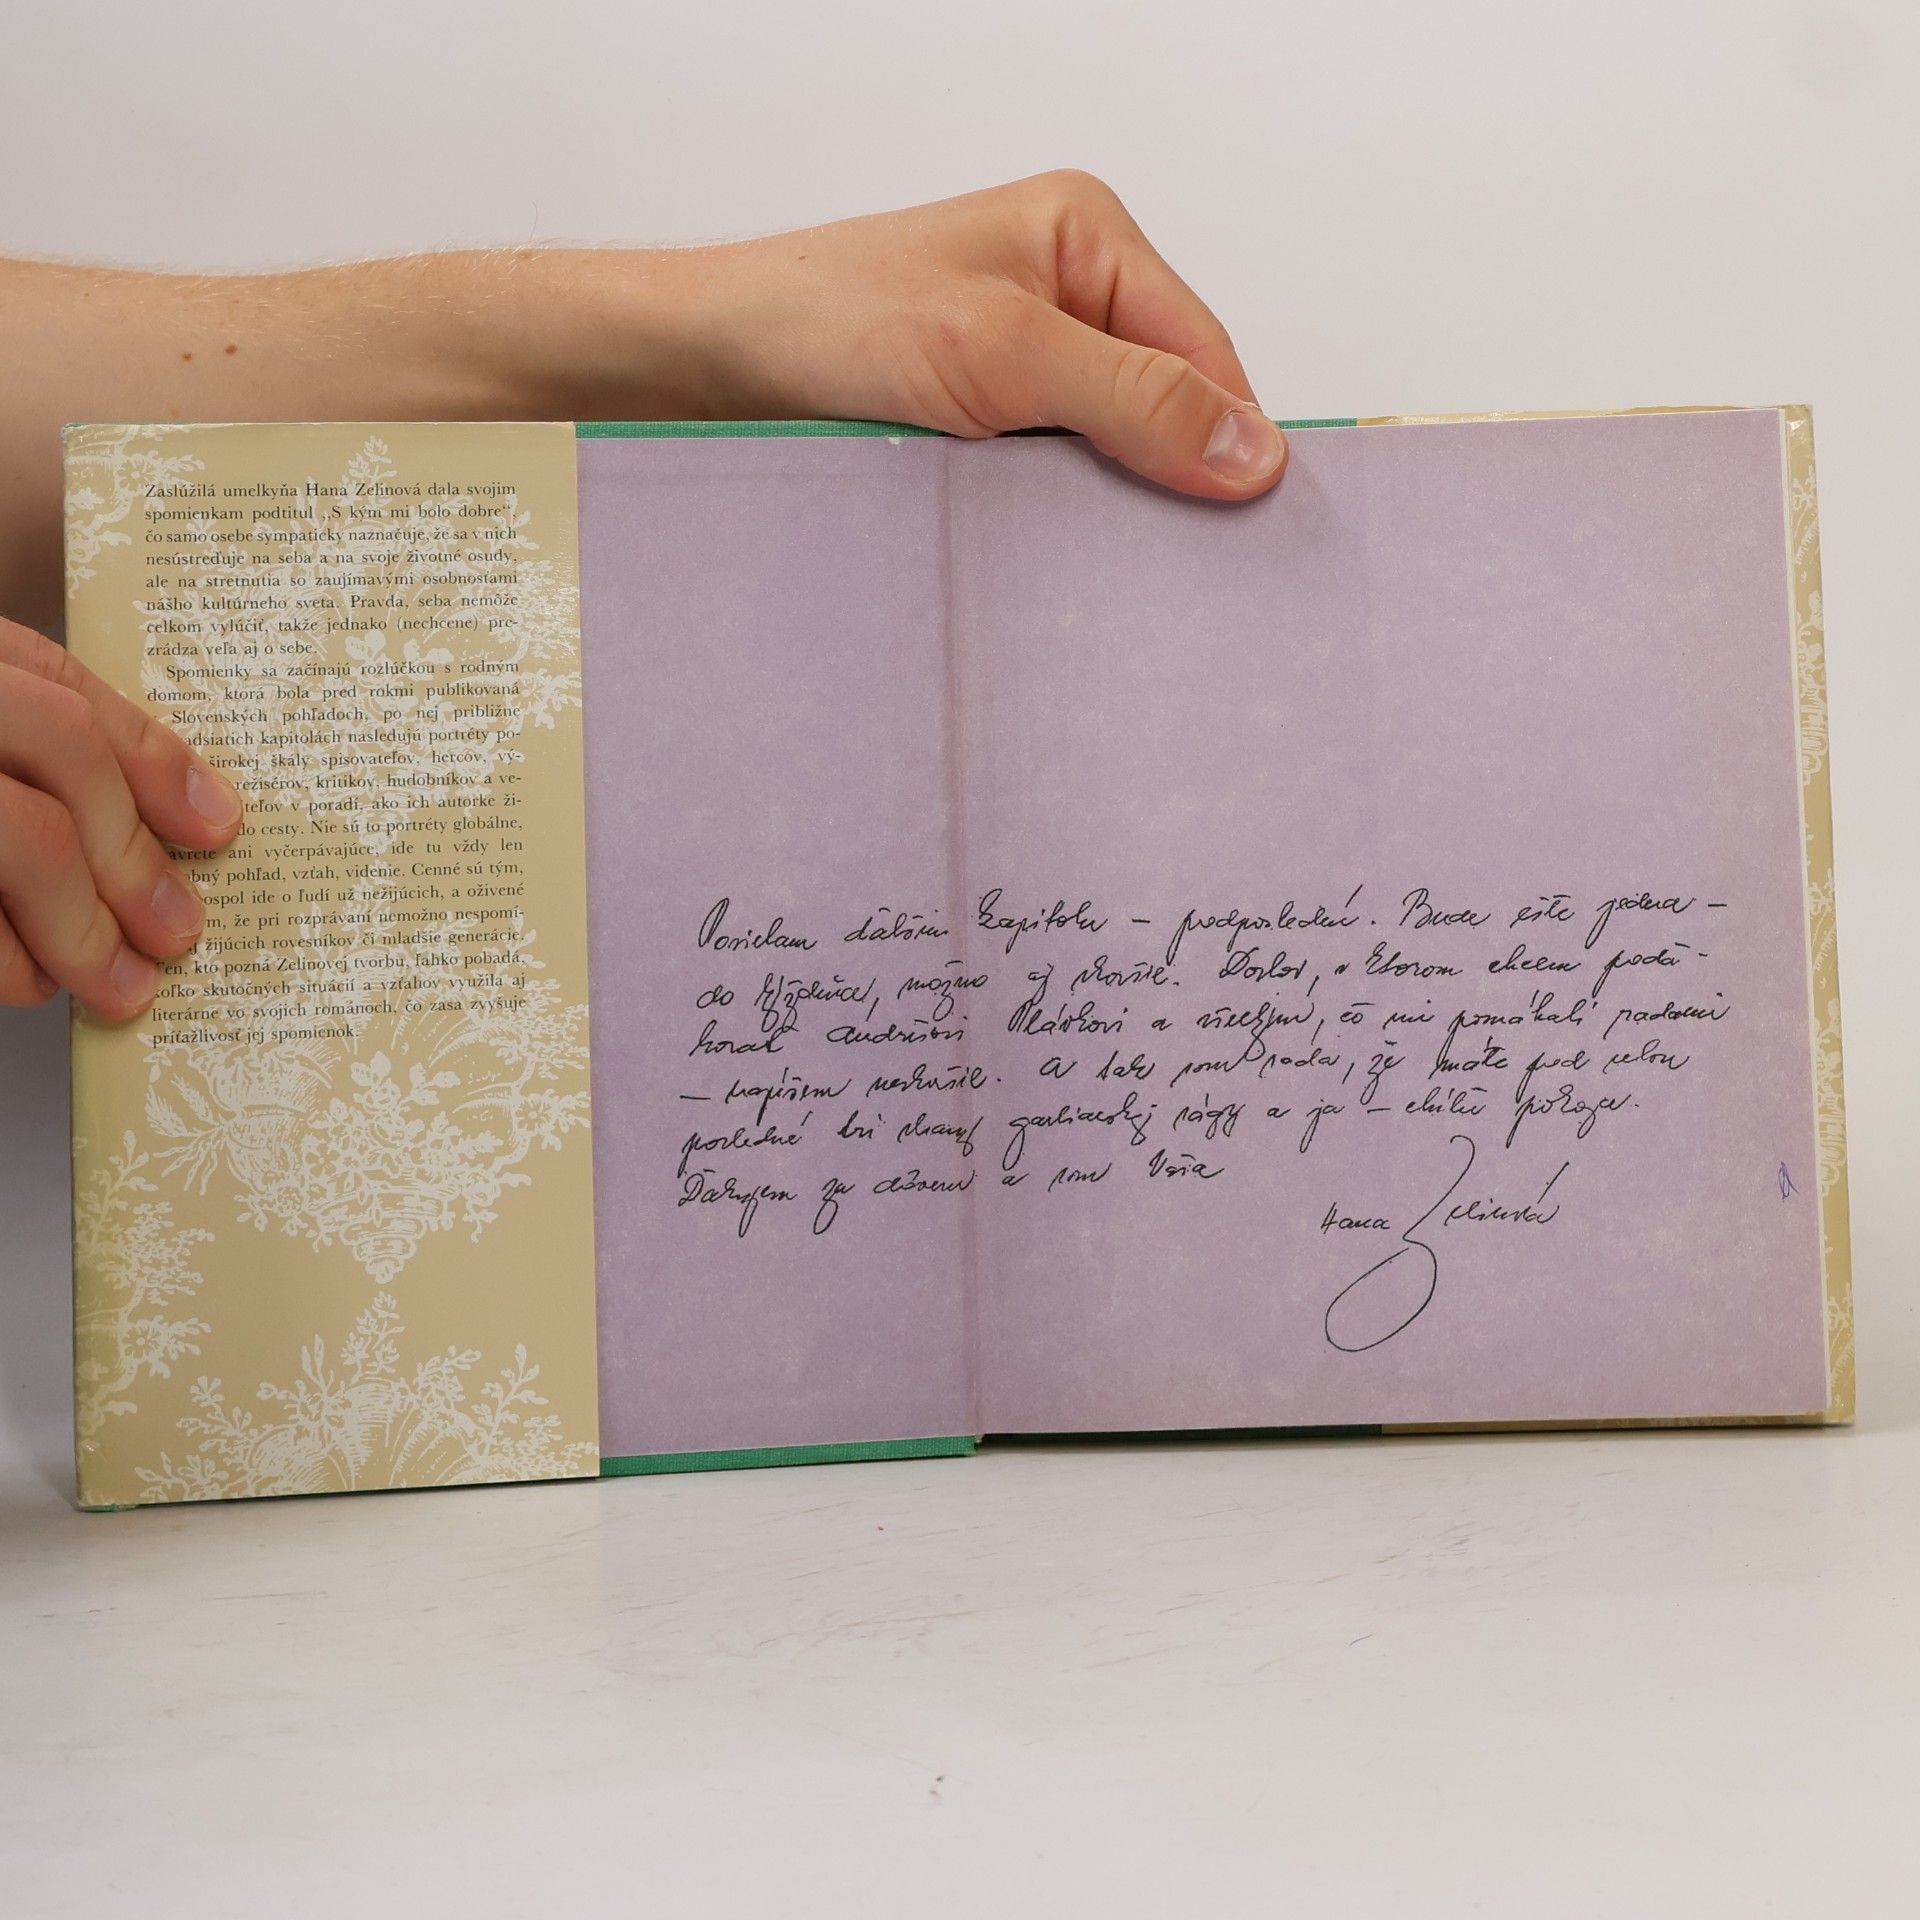 Zaslúžilá umelkyňa Hana Zelinová dala svojim
spomienkam podtitul „S kým mi bolo dobre“,
čo samo osebe sympaticky naznačuje, že sa v nich
nesústreďuje na seba a na svoje životné osudy,
ale na stretnutia so zaujímavými osobnosťami
nášho kultúrneho sveta. Pravda, seba nemôže
celkom vylúčiť, takže jednako (nechcene) pre-
zrádza veľa aj o sebe.
Spomienky sa začínajú rozlúčkou s rodným
domom, ktorá bola pred rokmi publikovaná
Slovenských pohľadoch, po nej približne
adsiatich kapitolách nasledujú portréty po-
širokej škály spisovateľov, hercov, vý-
režisérov, kritikov, hudobníkov a ve-
teľov v poradí, ako ich autorke ži-
do cesty. Nie sú to portréty globálne,
avreté ani vyčerpávajúce, ide tu vždy len
obný pohľad, vzťah, videnie. Cenné sú tým,
ospol ide o ľudí už nežijúcich, a oživené
m, že pri rozprávaní nemožno nespomí-
j žijúcich rovesníkov či mladšie generácie.
Ten, kto pozná Zelinovej tvorbu, ľahko pobadá,
koľko skutočných situácií a vzťahov využila aj
literárne vo svojich románoch, čo zasa zvyšuje
príťažlivosť jej spomienok.
Posielam ďalšiu kapitolu – predposlednú. Bude ešte jedna –
do týždňa, možno aj skoršie. Doslov, v ktorom chcem poďa-
kovať Andrišovi Plávkovi a všetkým, čo mi pomáhali radami
– napíšem neskoršie. A tak som rada, že máte pod rukou
posledné tri strany ságy a ja – chvíľu pokoja.
Ďakujem za dôveru a som Vaša
Hana Zelinová